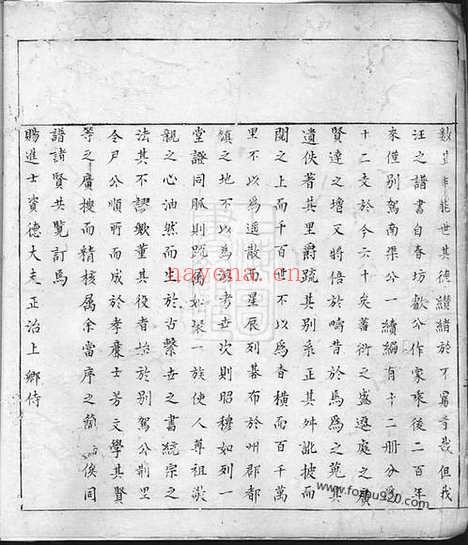 能世其德纘緒於不窮者哉但我
汪之譜書自春坊歙公作家乘後二百年
來僅別駕南渠公一續編有十二冊分為
十二支於今六十矣蕃衍之盛遷處之廣
賢達之增又將倍於疇昔於焉為之蒐其
遺佚著其里爵疏其別系正其舛訛披而
閱之上而千百世不以為杳橫而百千萬
里不以為遥散而星辰列碁布於州郡都
鎮之地不以為考世次則昭穆如列一
堂證同脈則疏屬如聚一族使人尊祖敬
親之心油然而生於古繫世之書統宗之
法其不謬歟董其役者始於別駕公荆里
令尹公順所而成於孝廉士芳文學其賢
等之廣搜而精核屬余當序之簡俟同
譜諸賢共覽訂焉
賜進士資德大夫正治上卿侍
nayena.com
www.fopu920.com